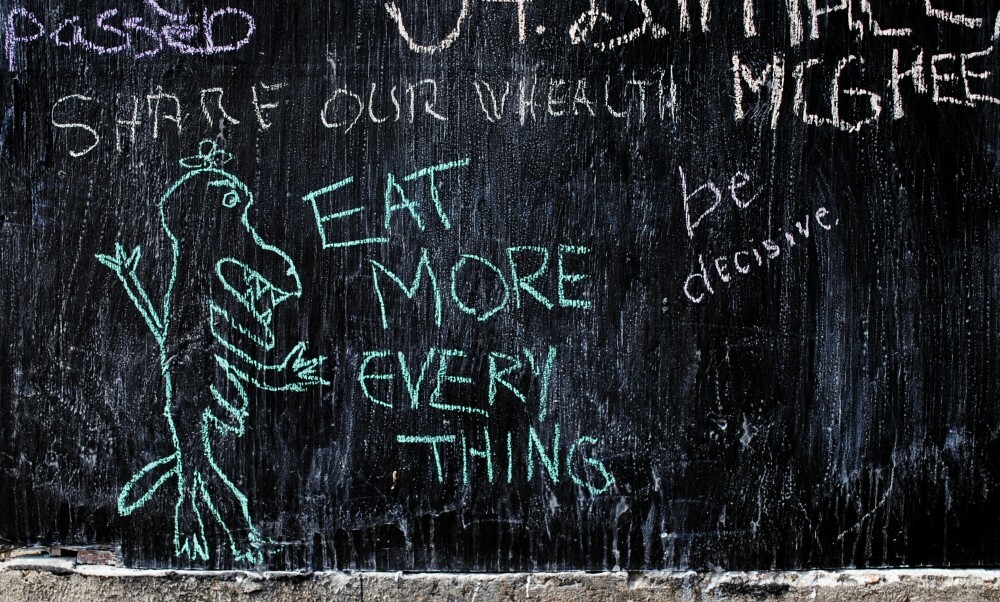 passED
SHARE OUR WHEALTH
MCGHEE
EAT
MORE
EVERY
THING
be
decisive